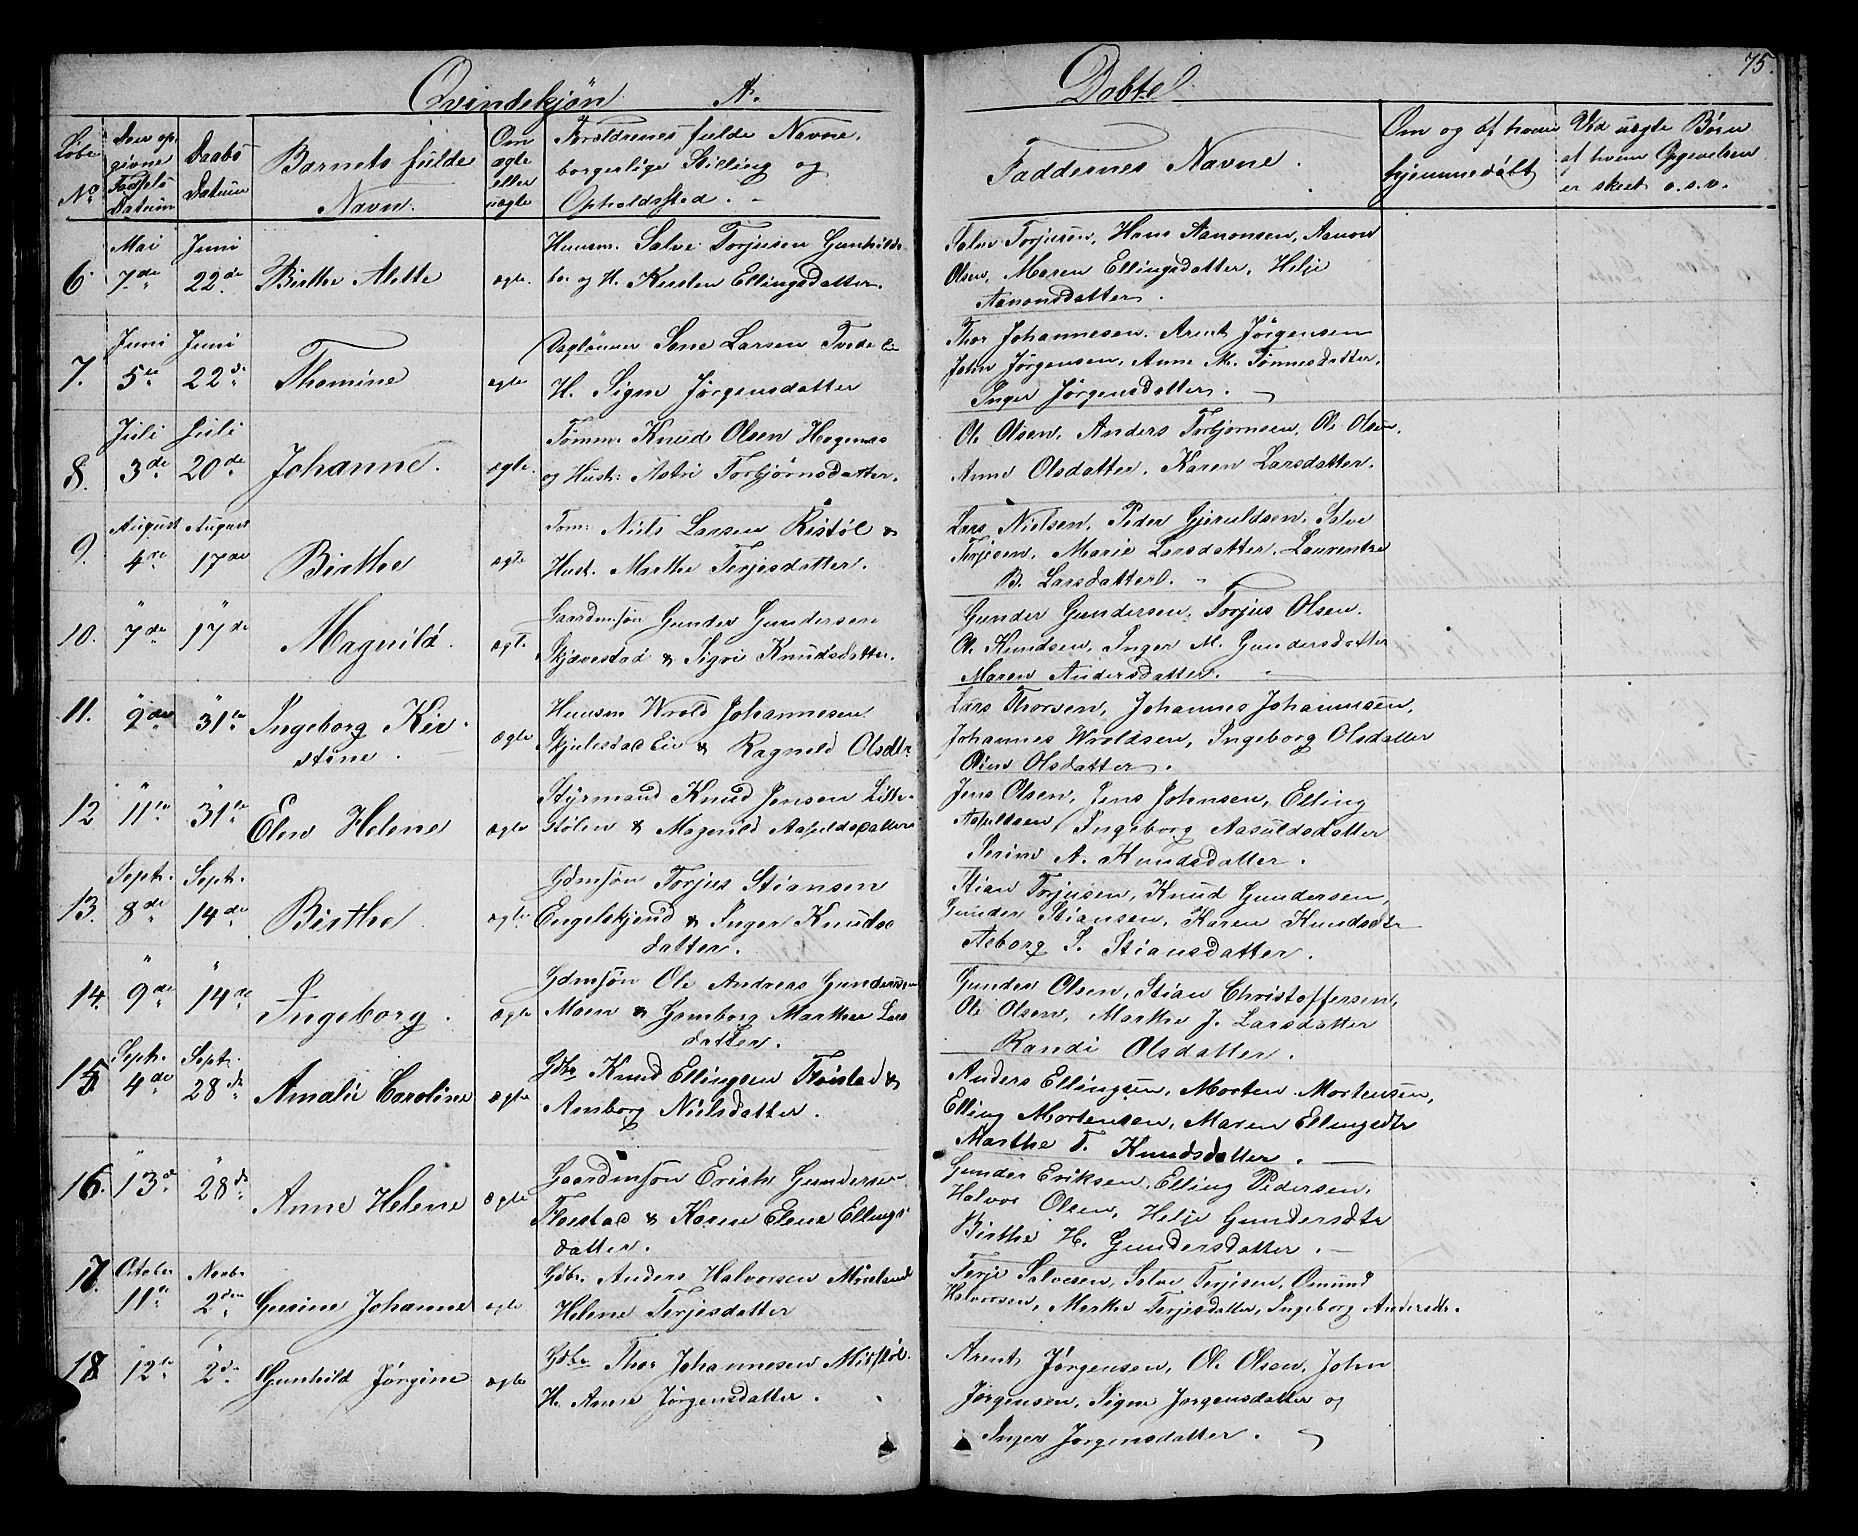 Qvindekjøn A. Døbte. 75.
Løbe No Den opgivne Fødsels Datum Daabs Datum Barnets fulde Navn. Om ægte eller uægte Forældrenes fulde Navne, borgerlige Stilling og Opholdssted. Faddernes Navne. Om og af hvem hjemmedøbt Ved uægte Børn af hvem Opgivelsen er skeet o.s.v.
6. Mai 7de Juni 22de Birthe Alette ægte. Huusm. Salve Torjusen Gunhilds-
bo. og H. Kirsten Ellingsdatter.
Salve Torjusen, Hans Aanonsen, Aanon
Olsen, Maren Ellingsdatter, Helje
Aanonsdatter.
7. Juni 5te Juni 22d Thomine ægte Daglønner Sone Larsen Tvede Eie
H. Signe Jørgensdatter
Thor Johannesen. Arent Jørgensen
John Jørgensen, Anne M. Tønnesdatter,
Inger Jørgensdatter.
8. Juli 3de Juli 20de Johanne. ægte. Tømm. Knud Olsen Hegenas
og Hust: Astri Torbjørnsdatter.
Ole Olsen, Anders Torbjørnsen, Ole Olsen,
Anne Olsdatter, Karen Larsdatter.
9. August 4de August 17de Birthe ægte Tøm: Niels Larsen Ristøl &
Hust. Marthe Terjesdatter.
Lars Nielsen, Peder Gjeruldsen, Salve
Terjesen, Marie Larsdatter, Laurentze
B. Larsdatter.
10. " 7de " 17de Magnild. ægte Gaardmsøn Gunder Gundersen
Skjævestad & Sigri Knudsdatter.
Gunder Gundersen, Torjus Olsen.
Ole Knudsen, Inger M. Gundersdatter
Maren Andersdatter.
11. " 9de " 31te Ingeborg Kir-
stine. ægte Huusm Wrold Johannesen
Skjulestad Eie & Ragnild Olsdtr
Lars Thorsen, Johannes Johannesen,
Johannes Wroldsen, Ingeborg Olsdatter
Olsdatter.
12 " 11te " 31te Elen Helene ægte Styrmand Knud Jensen Lille-
stølen & Magnild Asuldsdatter
Jens Olsen, Jens Johnsen, Elling
Asuldsen, Ingeborg Aasuldsdatter
Serine A. Knudsdatter.
13. Septr. 8de Septr. 14de Birthe ægte. Gdmsøn Torjus Stiansen
Engelskjend & Inger Knuds
datter.
Stian Torjusen, Knud Gundersen,
Gunder Stiansen, Karen Knudsdtr
Asborg S. Stiansdatter.
14. " 9de " 14de Ingeborg. ægte Gdmsøn Ole Andreas Gundersen
Moen & Gomborg Marthe Lars
datter.
Gunder Olsen, Stian Christoffersen,
Ole Olsen, Marthe J. Larsdatter
Randi Olsdatter.
15 Septr. 4de Septr. 28de Amalie Caroline ægte Gdbr Knud Ellingsen Fløistad &
Amborg Nielsdatter.
Anders Ellingsen, Morten Mortensen,
Elling Mortensen, Maren Ellingsdtr
Marthe T. Knudsdatter.
16. " 13de " 28de Anne Helene ægte Gaardmsøn Erich Gundersen
Fløistad & Karen Elene Ellings
datter.
Gunder Eriksen, Elling Pedersen,
Halvor Olsen, Helje Gundersdtr
Birthe H. Gundersdatter.
17. October 11te Novbr 2den Gurine Johanne ægte Gdbr. Anders Halvorsen
Helene Terjesdatter
Terje Salvesen, Salve Terjesen, Omund
Halvorsen, Marthe Terjesdatter, Ingeborg Andersdtr.
18 " 12te " 2den Gunhild Jørgine ægte Gdbr Thor Johannesen Midtbøl.
H. Anne Jørgensdatter.
Arent Jørgensen, Ole Olsen, John
Jørgensen, Signe Jørgensdatter og
Inger Jørgensdatter.